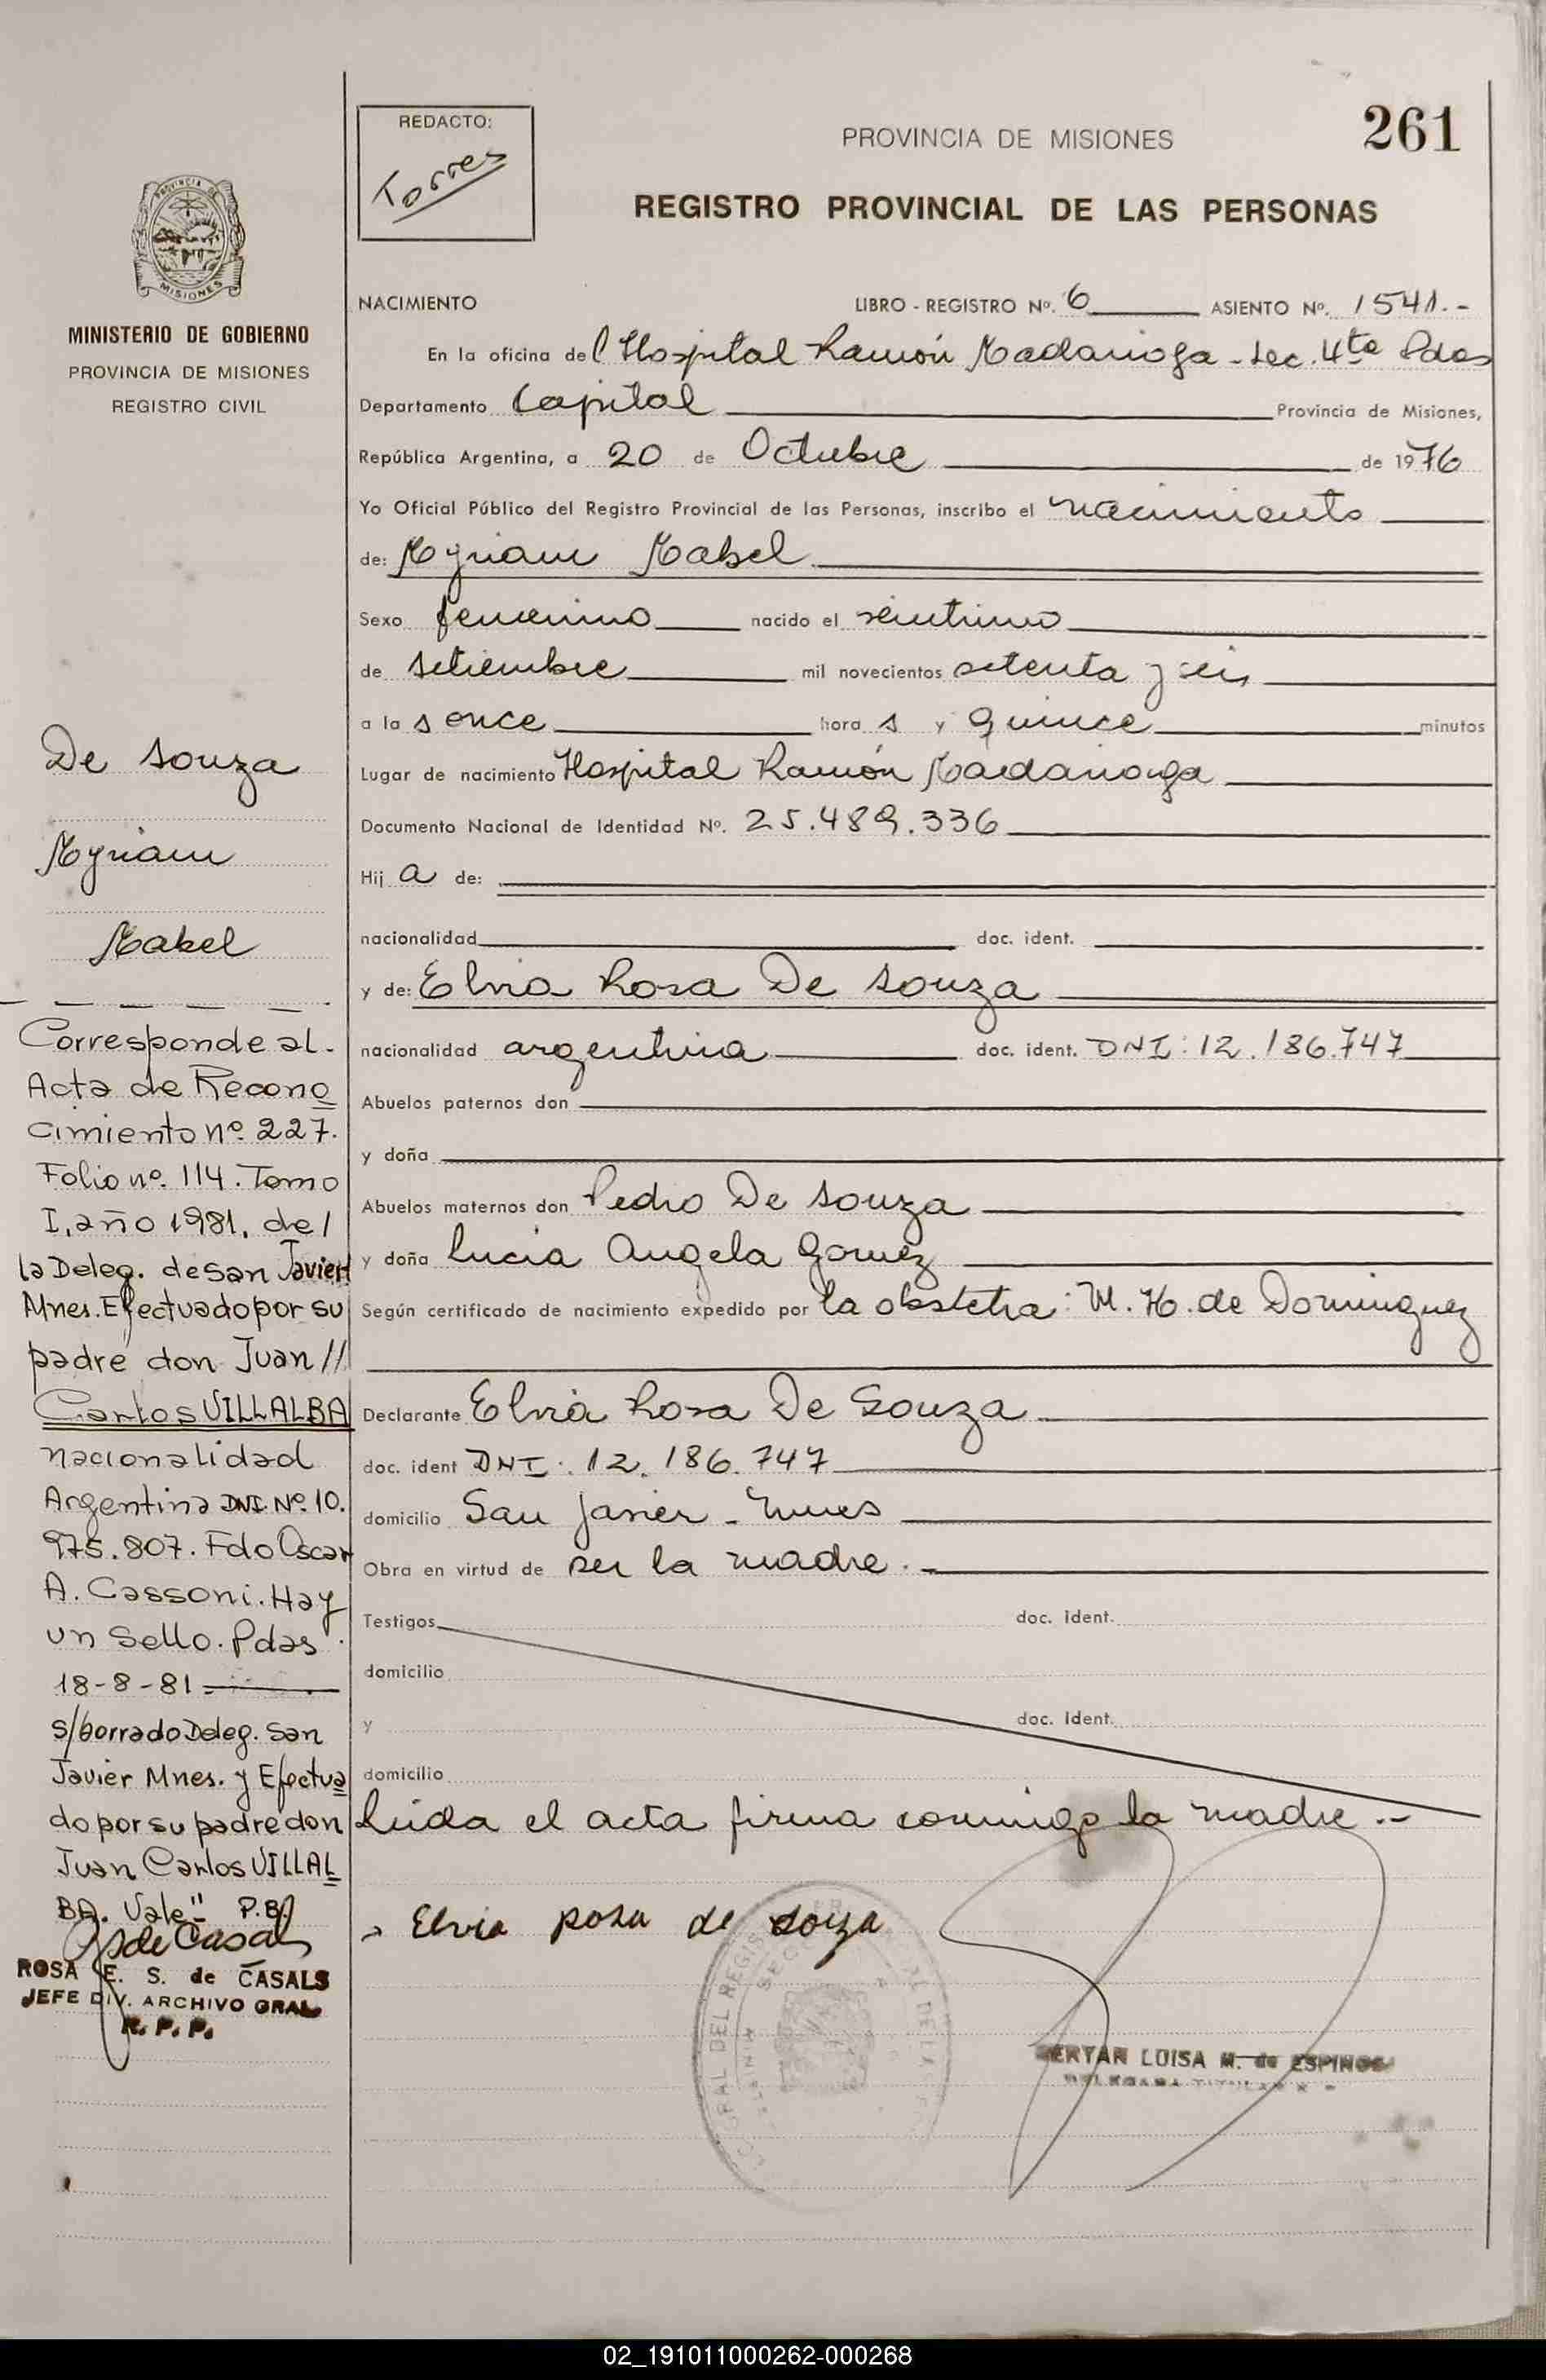 261
REDACTO:
Torres
PROVINCIA DE MISIONES
REGISTRO PROVINCIAL DE LAS PERSONAS
PROVINCIA DE
MISIONES
MINISTERIO DE GOBIERNO
PROVINCIA DE MISIONES
REGISTRO CIVIL
NACIMIENTO LIBRO - REGISTRO Nº. 6 ASIENTO Nº. 1541.-
En la oficina del Hospital Ramón Madariaga - Sec. 4ta Pdas
Departamento Capital Provincia de Misiones,
República Argentina, a 20 de Octubre de 1976
Yo Oficial Público del Registro Provincial de las Personas, inscribo el nacimiento
de: Myriam Mabel
Sexo femenino nacido el veintiuno
de setiembre mil novecientos setenta y seis
a la s once hora s y quince minutos
Lugar de nacimiento Hospital Ramón Madariaga
Documento Nacional de Identidad Nº. 25.489.336
Hij a de:
nacionalidad doc. ident.
y de: Elvia Rosa De Souza
nacionalidad argentina doc. ident. DNI: 12.186.747
Abuelos paternos don
y doña
Abuelos maternos don Pedro De Souza
y doña Lucia Angela Gomez
Según certificado de nacimiento expedido por la obstetra: M. H. de Dominguez
Declarante Elvia Rosa De Souza
doc. ident DNI: 12.186.747
domicilio San Javier - Mnes
Obra en virtud de ser la madre.-
Testigos doc. ident.
domicilio
y doc. ident.
domicilio
Leida el acta firma conmigo la madre.-
Elvia Rosa de Souza
LUISA M. de ESPINOSA
De Souza
Myriam
Mabel
Corresponde al.
Acta de Recono
cimiento nº. 227.
Folio nº. 114. Tomo
I, año 1981, de/
la Deleg. de San Javier
Mnes. Efectuado por su
padre don Juan //
Carlos VILLALBA
nacionalidad
Argentina DNI. Nº. 10.
975.807. Fdo Oscar
A. Cassoni. Hay
un Sello. Pdas.
18-8-81.-
s/borrado Deleg. San
Javier Mnes. y Efectua
do por su padre don
Juan Carlos VILLAL
BA. Vale" P.B.
ROSA E. S. de CASALS
JEFE DIV. ARCHIVO GRAL
R. P. P.
02_191011000262-000268